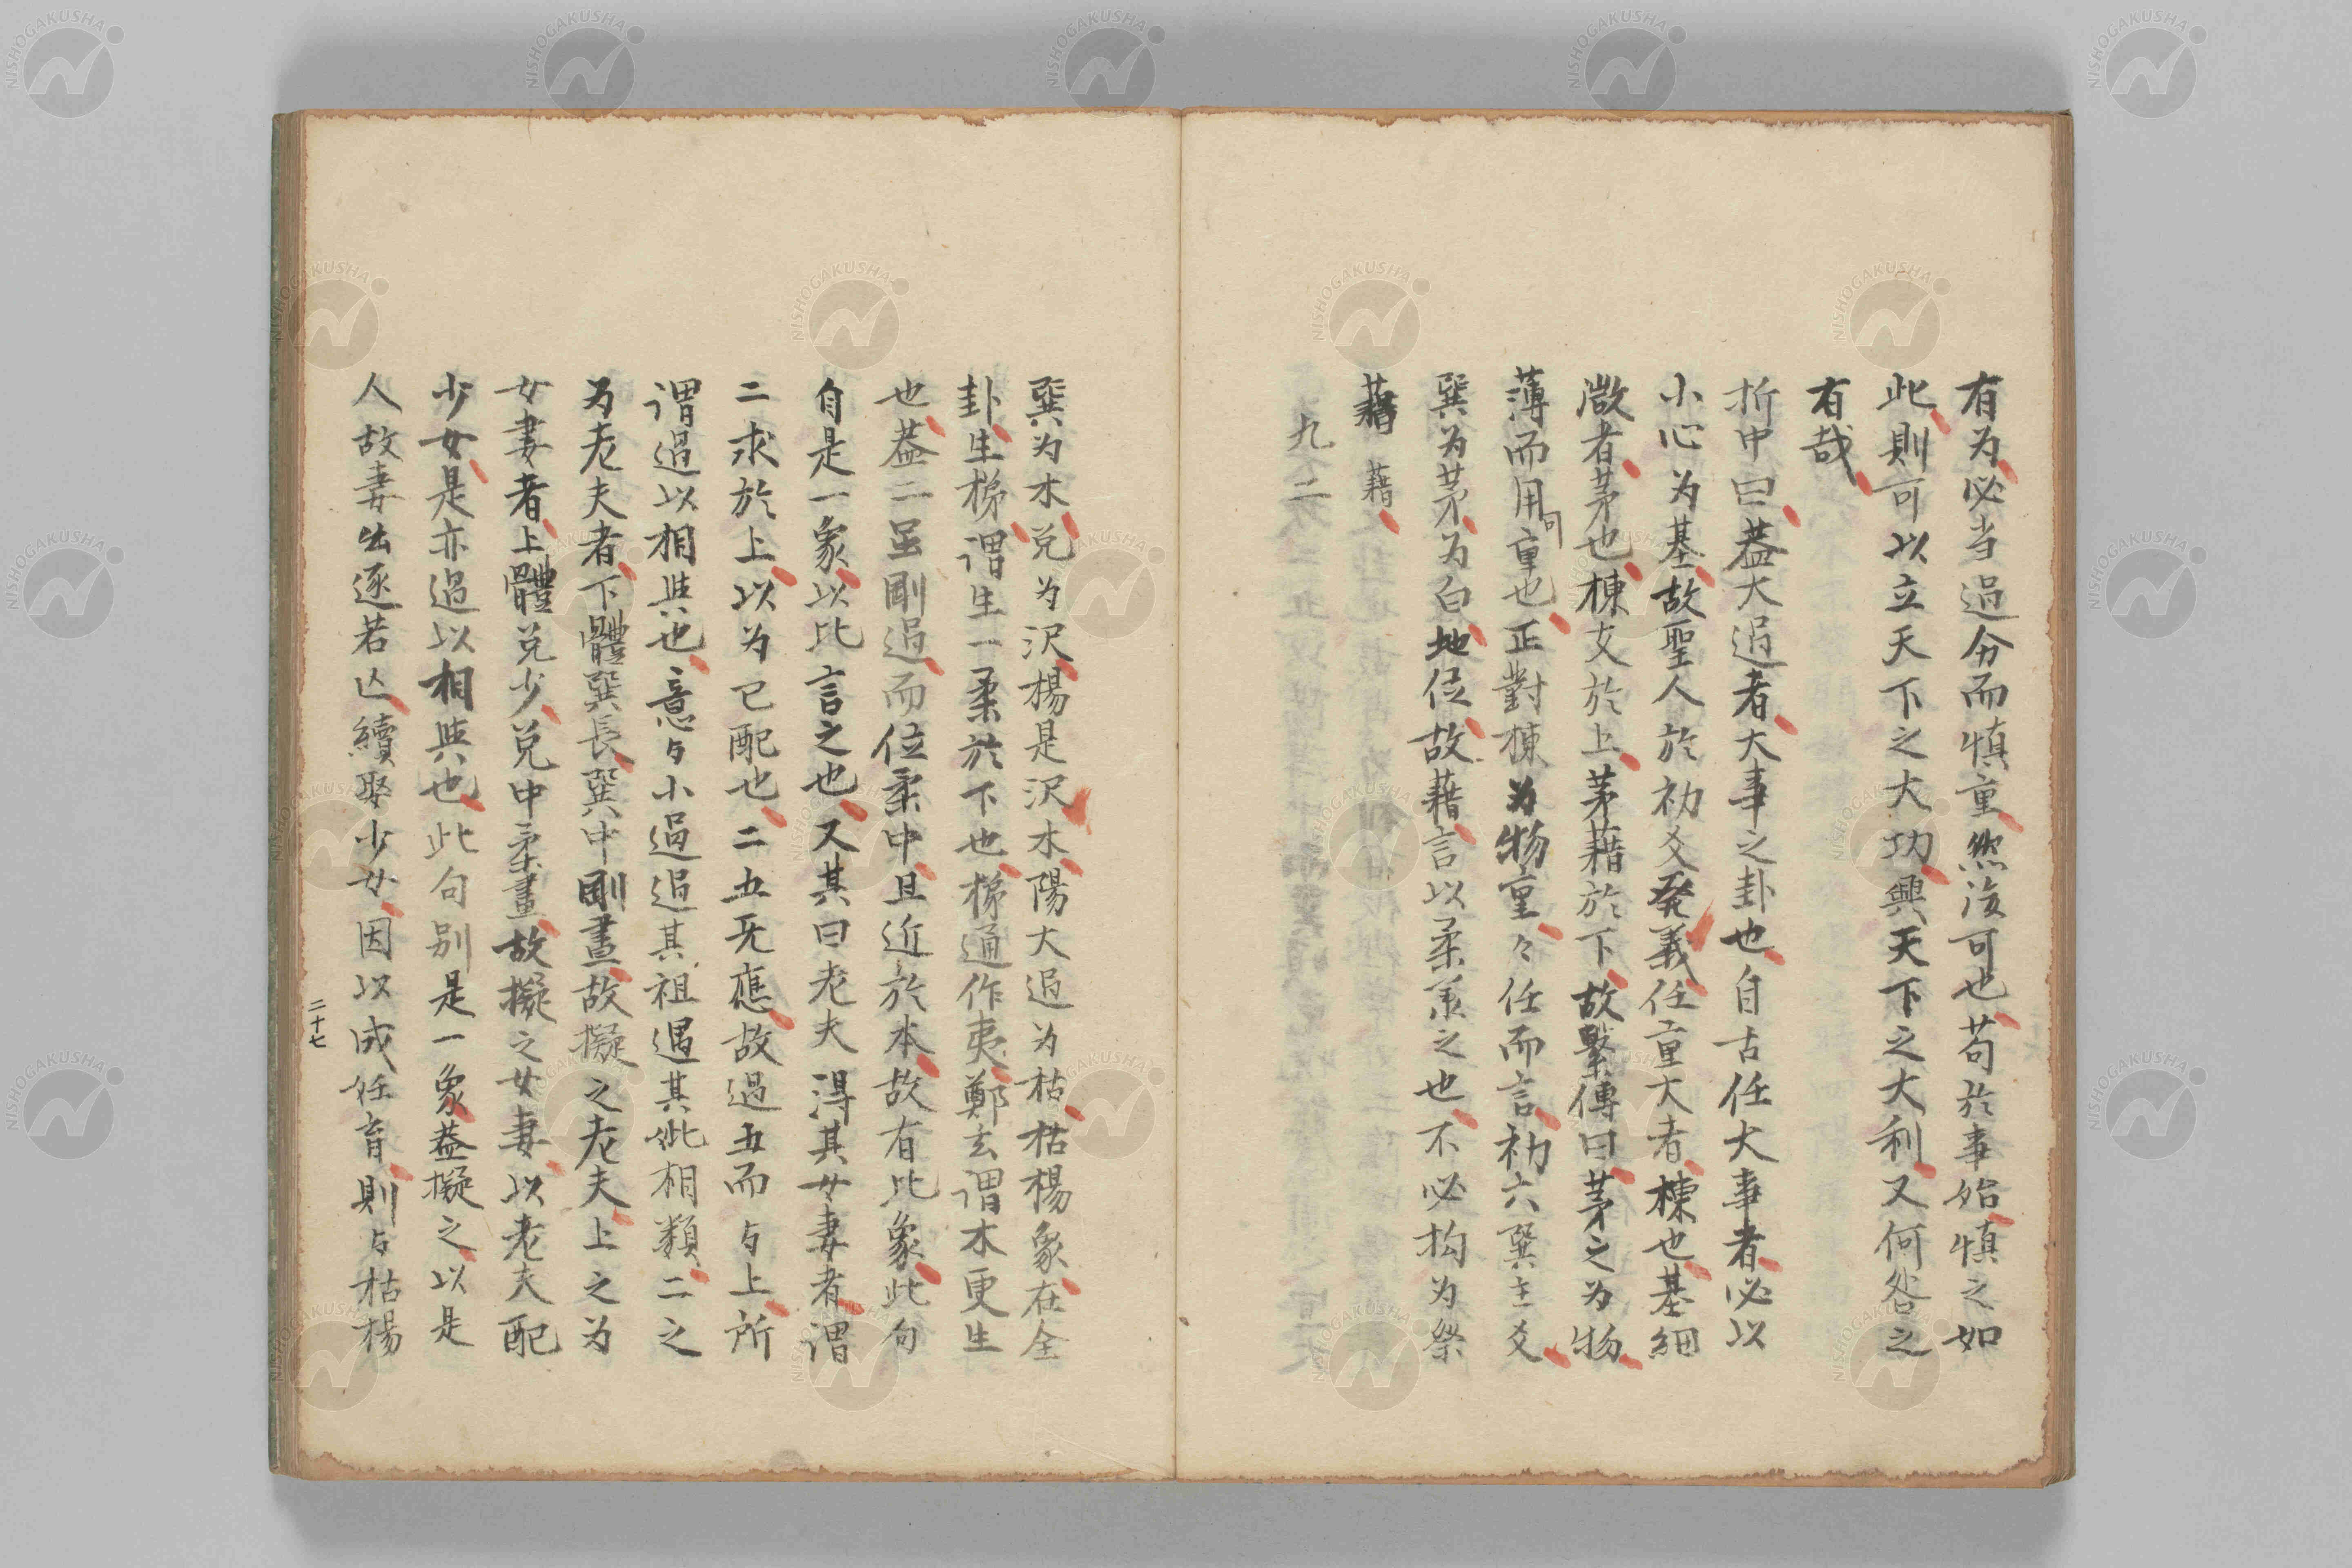 有为必当過分而慎重然後可也苟於事始慎之如
此則可以立天下之大功興天下之大利又何咎之
有哉
折中曰蓋大過者大事之卦也自古任大事者必以
小心为基故聖人於初爻発義任重大者棟也基細
微者茅也棟支於上茅藉於下故繫傳曰茅之为物
薄而用可重也正對棟为物重々任而言初六巽主爻
巽为茅为白地位故藉言以柔藉之也不必构为祭
藉
九二
巽为木兑为沢楊是沢木陽大過为枯枯楊象在全
卦生梯謂生一柔於下也梯通作夷鄭玄謂木更生
也蓋二虽剛過而位柔中且近於本故有此象此句
自是一象以比言之也又其曰老夫得其女妻者謂
二求於上以为已配也二五旡應故過五而与上所
謂過以相與也意与小過過其祖遇其妣相類二之
为老夫者下體巽長巽中剛畫故擬之老夫上之为
女妻者上體兑少兑中柔畫故擬之女妻以老夫配
少女是亦過以相與也此句别是一象蓋擬之以是
人故妻出逐若亾續娶少女因以成妊育則与枯楊
二十七
NISHOGAKUSHA